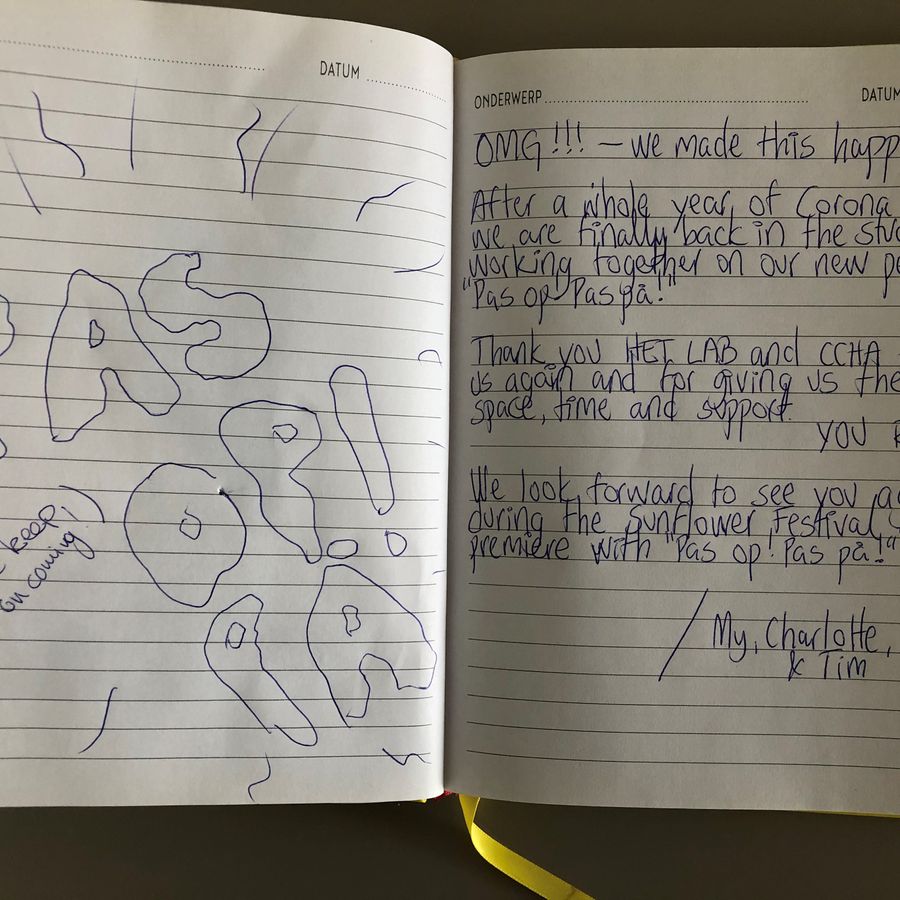 DATUM
keep
on coming!
AS
OP!
PÅ
ONDERWERP DATUM
OMG!!! – we made this happ
After a whole year of Corona
we are finally back in the stu
working together on our new pe
"Pas op Pas på!"
Thank you HET LAB and CCHA
us again and for giving us the
space, time and support.
YOU R
We look forward to see you ag
during the Sunflower Festival
premiere with "Pas op! Pas på!"
/ My, Charlotte,
& Tim